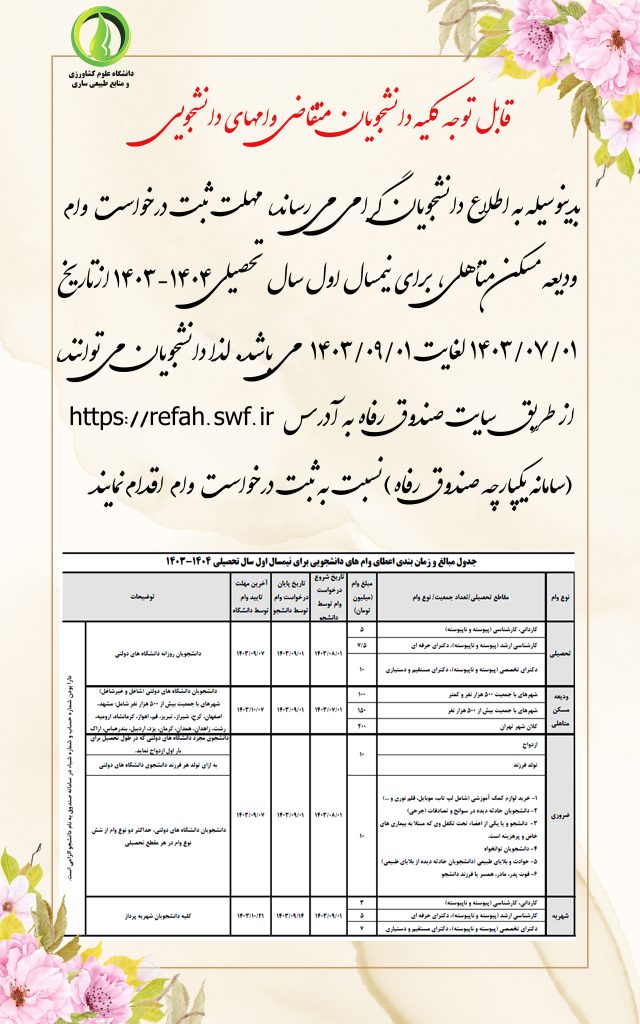 دانشگاه علوم کشاورزی
و منابع طبیعی ساری
قابل توجه کلیه دانشجویان متقاضی وامهای دانشجویی
بدینوسیله به اطلاع دانشجویان گرامی می رساند، مهلت ثبت درخواست وام
ودیعه مسکن متأهلی، برای نیمسال اول سال تحصیلی ۱۴۰۴-۱۴۰۳ از تاریخ
۱۴۰۳/۰۷/۰۱ لغایت ۱۴۰۳/۰۹/۰۱ می باشد. لذا دانشجویان می توانند،
از طریق سایت صندوق رفاه به آدرس https://refah.swf.ir
(سامانه یکپارچه صندوق رفاه) نسبت به ثبت درخواست وام اقدام نمایند
جدول مبالغ و زمان بندی اعطای وام های دانشجویی برای نیمسال اول سال تحصیلی ۱۴۰۴-۱۴۰۳
نوع وام
مقاطع تحصیلی/تعداد جمعیت/ نوع وام
مبلغ وام (میلیون تومان)
تاریخ شروع درخواست وام توسط دانشجو
تاریخ پایان درخواست وام توسط دانشجو
آخرین مهلت تایید وام توسط دانشگاه
توضیحات
تحصیلی
کاردانی، کارشناسی (پیوسته و ناپیوسته)
۵
کارشناسی ارشد (پیوسته و ناپیوسته)، دکترای حرفه ای
۷/۵
دکترای تخصصی (پیوسته و ناپیوسته)، دکترای مستقیم و دستیاری
۱۰
۱۴۰۳/۰۸/۰۱
۱۴۰۳/۰۹/۰۱
۱۴۰۳/۰۹/۰۷
دانشجویان روزانه دانشگاه های دولتی
ودیعه مسکن متاهلی
شهرهای با جمعیت ۵۰۰ هزار نفر و کمتر
۱۰۰
شهرهای با جمعیت بیش از ۵۰۰ هزار نفر
۱۵۰
کلان شهر تهران
۲۰۰
۱۴۰۳/۰۷/۰۱
۱۴۰۳/۰۹/۰۱
۱۴۰۳/۱۰/۰۷
دانشجویان دانشگاه های دولتی (شاغل و غیرشاغل)
شهرهای با جمعیت بیش از ۵۰۰ هزار نفر شامل: مشهد،
اصفهان، کرج، شیراز، تبریز، قم، اهواز، کرمانشاه، ارومیه،
رشت، زاهدان، همدان، کرمان، یزد، اردبیل، بندرعباس، اراک
ضروری
ازدواج
تولد فرزند
۱۰
دانشجوی مجرد دانشگاه های دولتی که در طول تحصیل برای
بار اول ازدواج نماید.
به ازای تولد هر فرزند دانشجوی دانشگاه های دولتی
۱- خرید لوازم کمک آموزشی (شامل لپ تاپ، موبایل، قلم نوری و ...)
۲- دانشجویان حادثه دیده در سوانح و تصادفات (جرحی)
۳- دانشجو و یا یکی از اعضاء تحت تکفل وی که مبتلا به بیماری های
خاص و پرهزینه است.
۴- دانشجویان توانخواه
۵- حوادث و بلایای طبیعی (دانشجویان حادثه دیده از بلایای طبیعی)
۶- فوت پدر، مادر، همسر یا فرزند دانشجو
۱۰
۱۴۰۳/۰۸/۰۱
۱۴۰۳/۰۹/۰۱
۱۴۰۳/۰۹/۰۷
دانشجویان دانشگاه های دولتی، حداکثر دو نوع وام از شش
نوع وام در هر مقطع تحصیلی
شهریه
کاردانی، کارشناسی (پیوسته و ناپیوسته)
۳
کارشناسی ارشد (پیوسته و ناپیوسته)، دکترای حرفه ای
۵
دکترای تخصصی (پیوسته و ناپیوسته)، دکترای مستقیم و دستیاری
۷
۱۴۰۳/۰۹/۰۱
۱۴۰۳/۰۹/۱۴
۱۴۰۳/۱۰/۲۱
کلیه دانشجویان شهریه پرداز
دارا بودن شماره حساب و شماره شبا، در سامانه صندوق به نام دانشجو الزامی است.